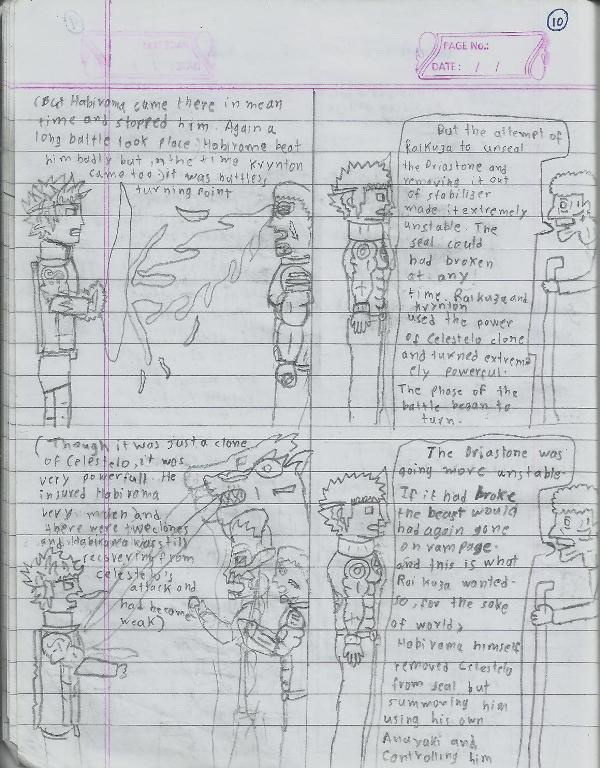 10
PAGE No.:
DATE: / /
(But Habirama came there in mean
time and stopped him. Again a
long battle took place. Habirama beat
him badly but in the time Krynton
came too. It was battles,
turning point
But the attempt of
Raikuza to unseal
the Driastone and
removing it out
of stabilizer
made it extremely
unstable. The
seal could
had broken
at any
time. Raikuza and
krynton
used the power
of celestelo clone
and turned extrem
ely powerful.
The phase of the
battle began to
turn.
(Though it was just a clone
of Celestelo, it was
very powerfull. He
injured Habirama
very much and
there were two clones
and Habirama was still
recovering from
celestelo's
attack and
had become
weak)
The Driastone was
going more unstable.
If it had broke
the beast would
had again gone
on rampage.
and this is what
Raikuza wanted.
so, for the sake
of world,
Habirama himself
removed Celestelo
from seal but
summoving him
using his own
Anayaki and
controlling him